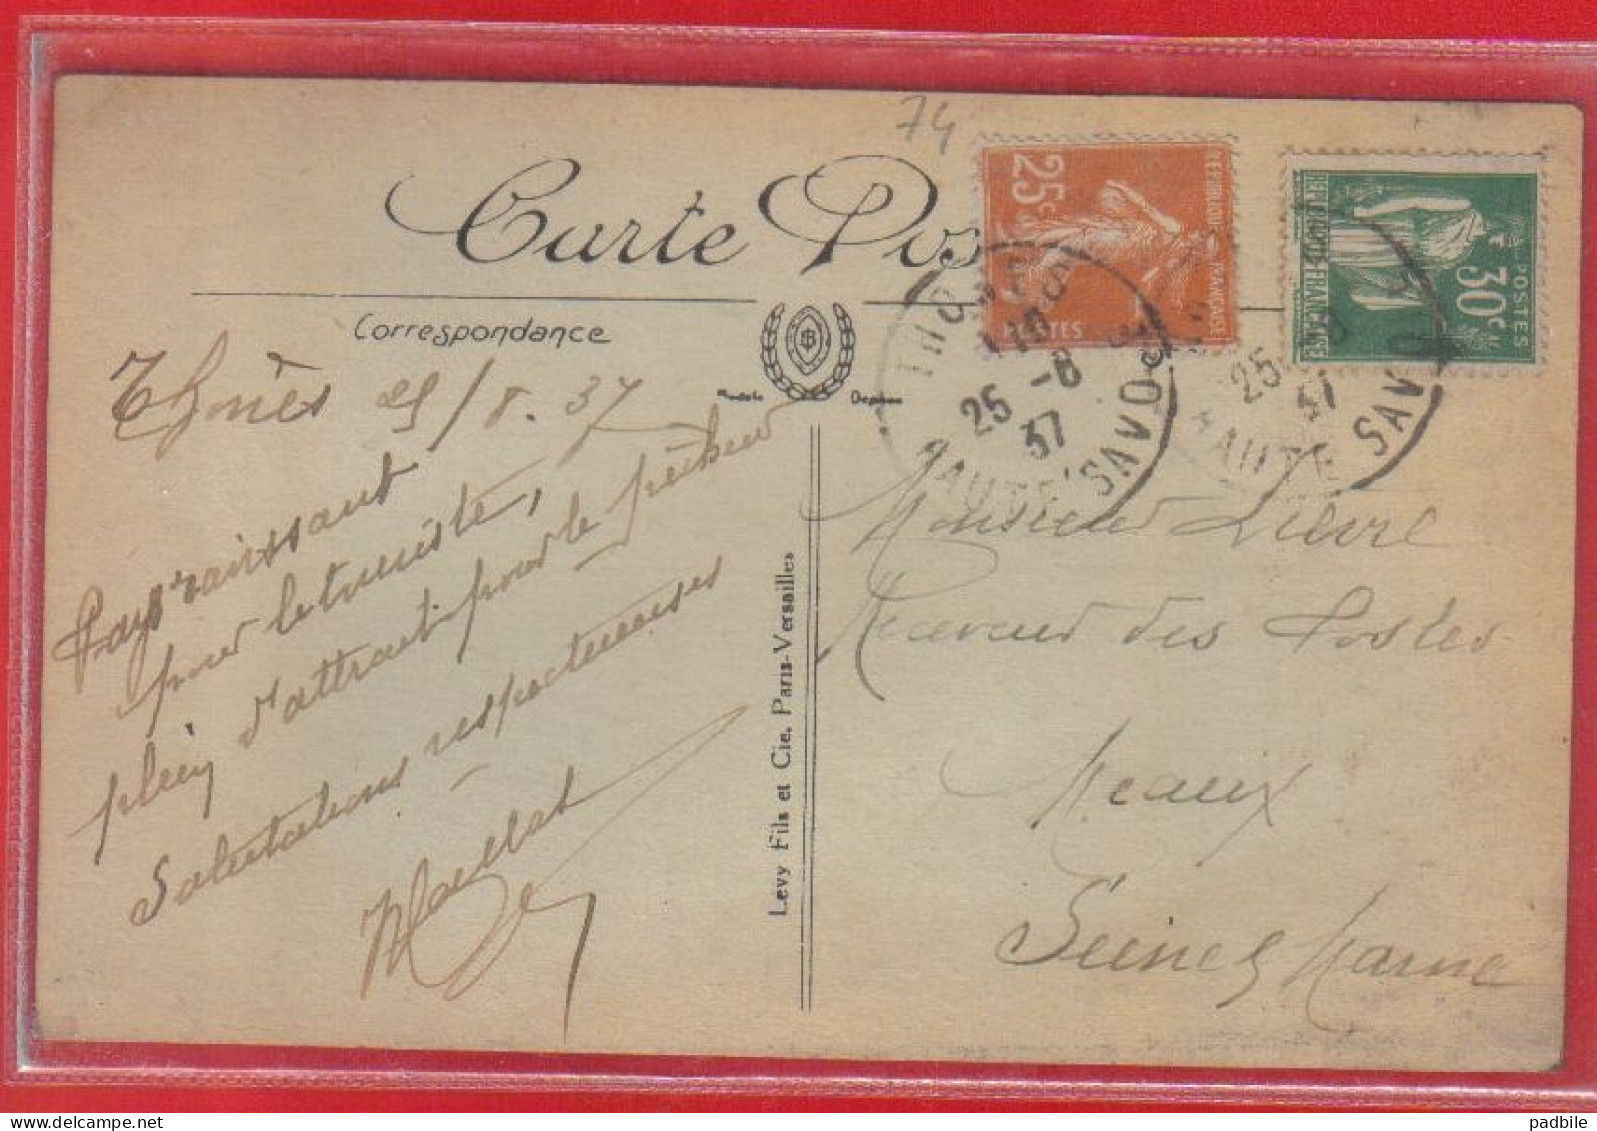 74
Carte Pos
Correspondance
Modèle Déposé
25c
POSTES
REPUBLIQUE FRANÇAISE
POSTES
30c
25 -8
37
HAUTE SAVOIE
25
37
HAUTE SAVOIE
Thônes 25/8.37
Pays ravissant
pour le touriste,
plein d'attrait pour le pêcheur
Salutations respectueuses
Levy Fils et Cie, Paris-Versailles
Monsieur Lièvre
Receveur des Postes
Meaux
Seine & Marne
padbile